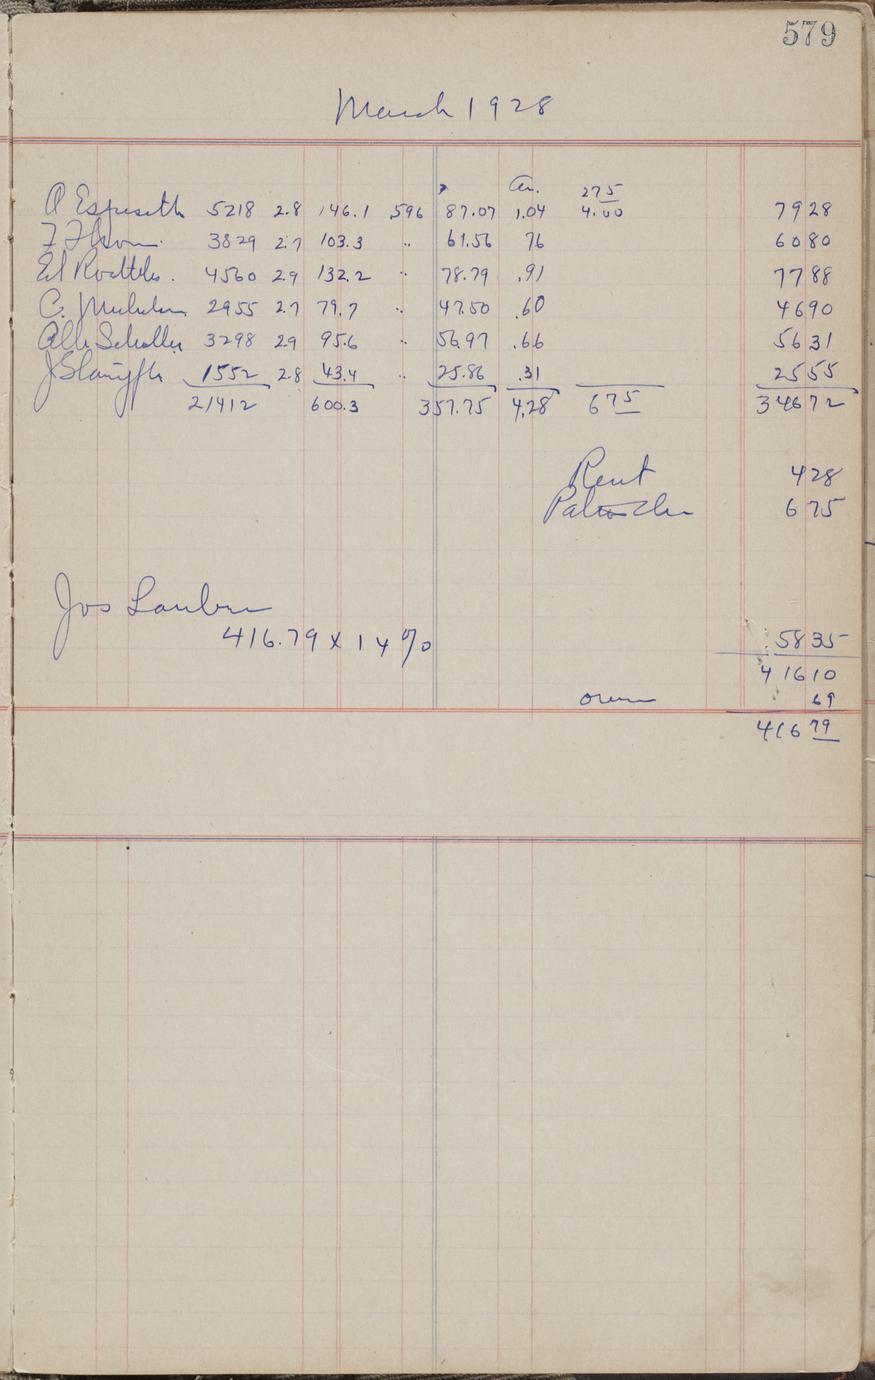 579
March 1928
an. 275
A Espeseth 5218 2.8 146.1 596 87.07 1.04 4.00 7928
3829 2.7 103.3 .. 61.56 76 6080
Ed 4560 2.9 132.2 .. 78.79 .91 7788
C. 2955 2.7 79.7 .. 47.50 .60 4690
3298 2.9 95.6 .. 56.97 .66 5631
J 1552 2.8 43.4 .. 25.86 .31 2555
21412 600.3 357.75 4.28 675 34672
Rent 428
675
Jos
416.79 x 14 % 5835
41610
over 69
41679